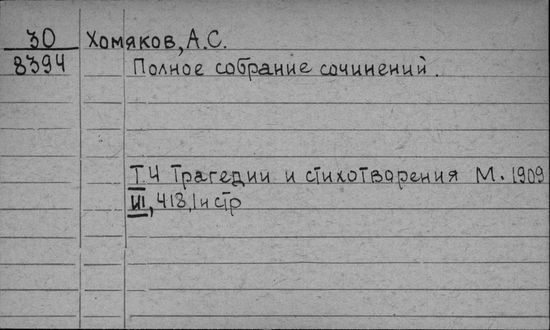 30 Хомяков, А.С.
8394 Полное собрание сочинений.
Т.4 Трагедии и стихотворения М. 1909
VI, 418, 1 н стр